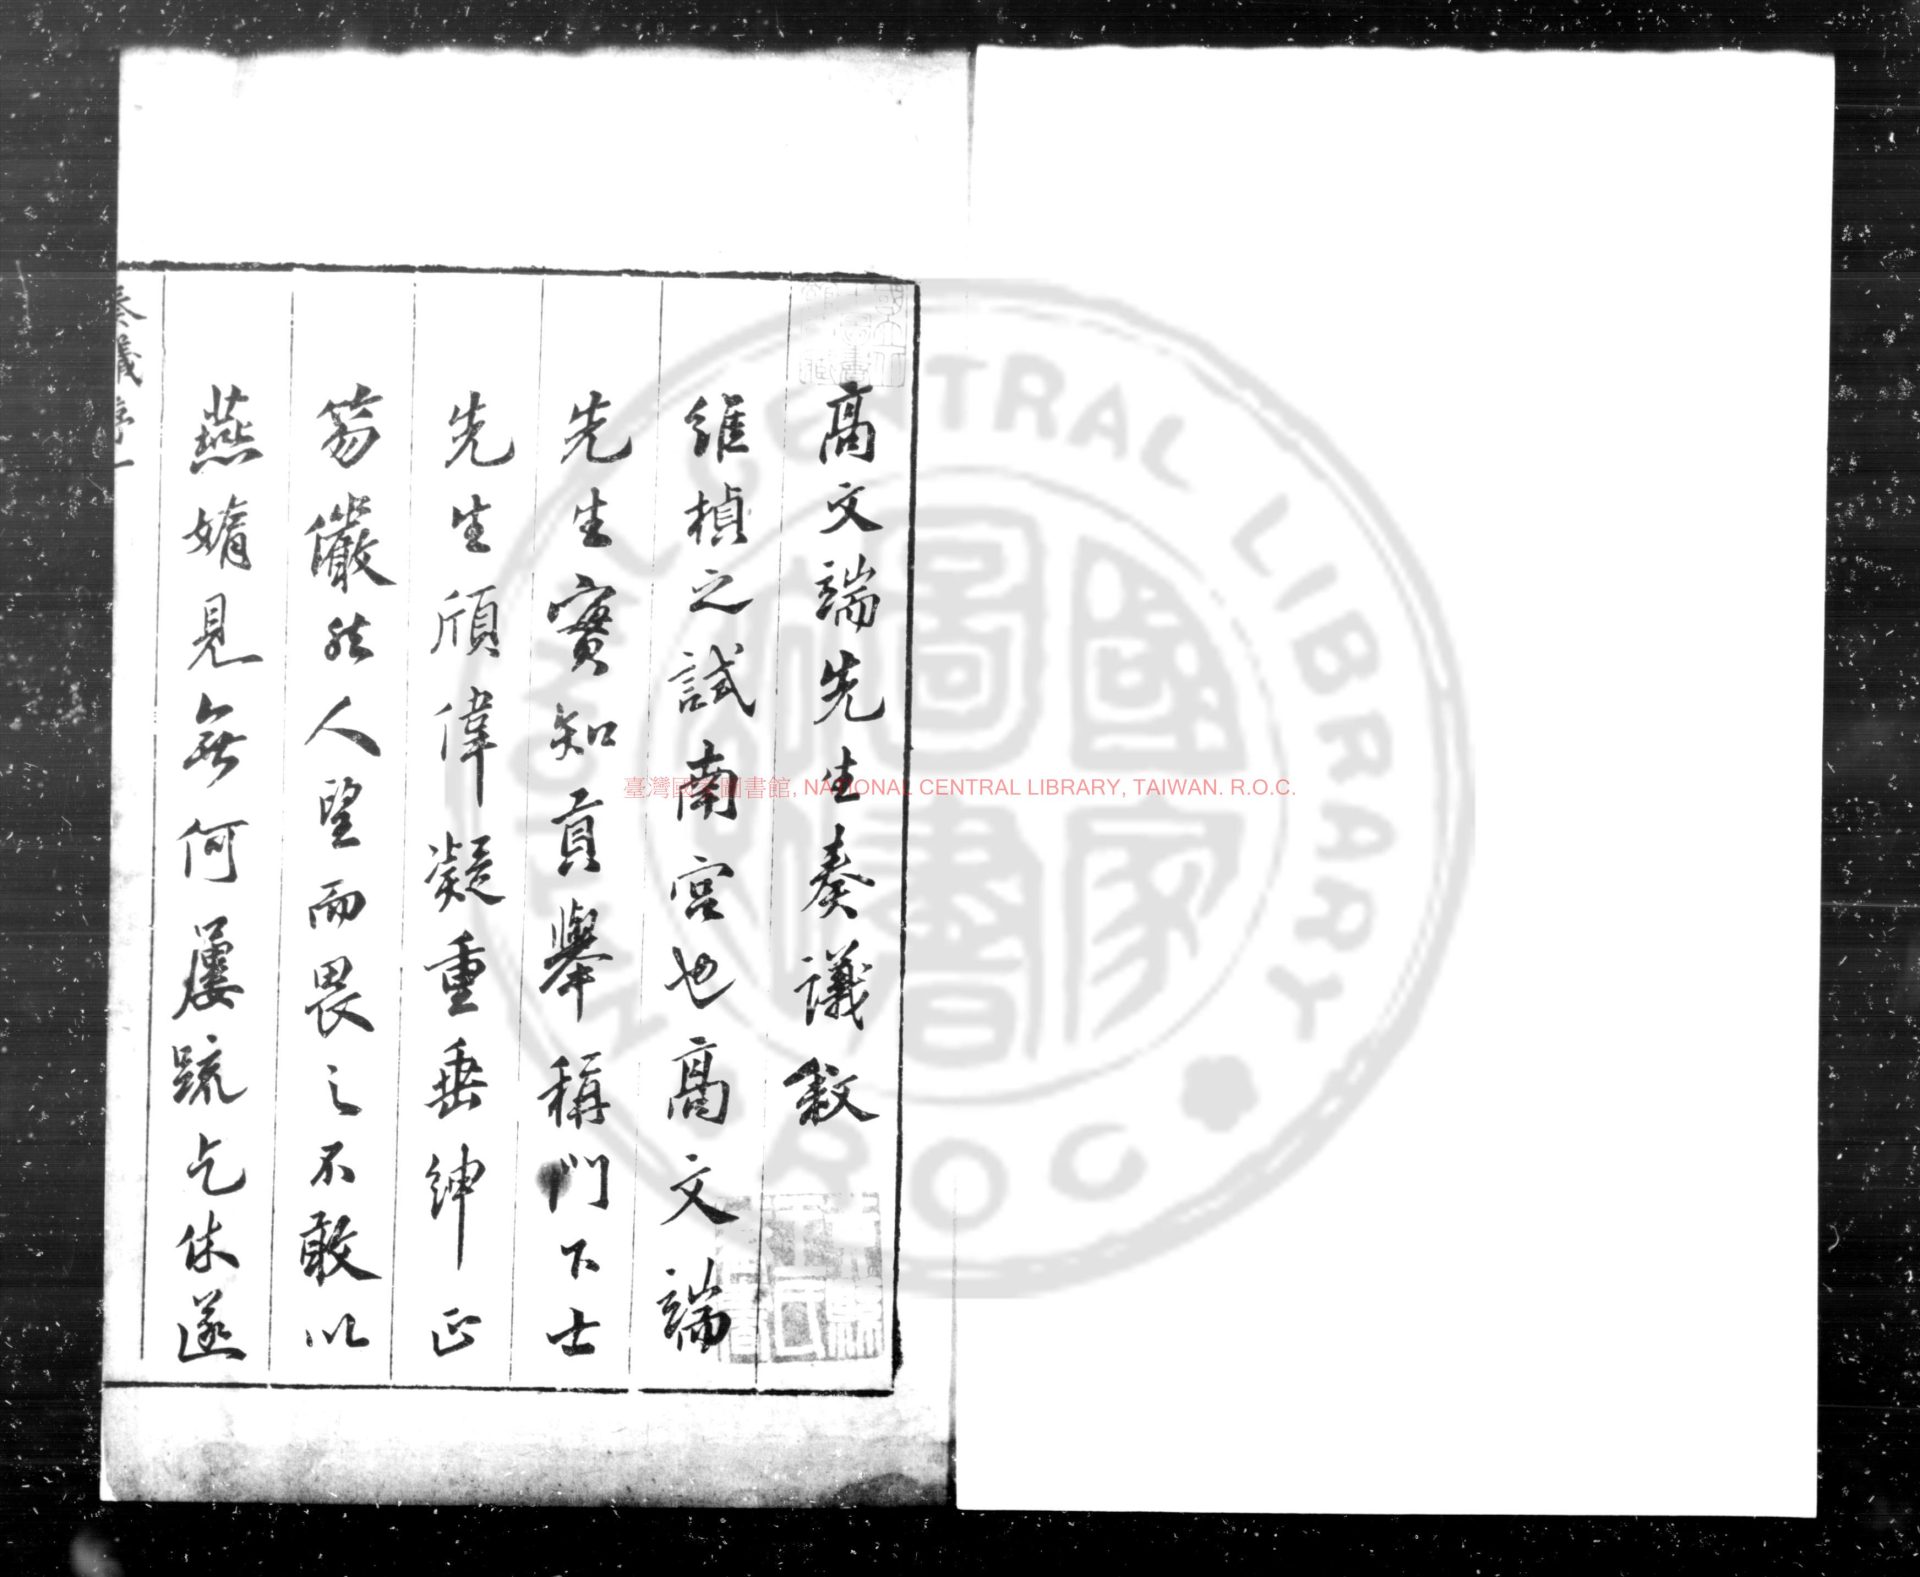 高文端先生奏議敘
維楨之試南宮也高文端
先生實知貢舉稱門下士
先生頎偉凝重垂紳正
笏儼然人望而畏之不敢以
燕媠見無何屢疏乞休遂
奏議序一
臺灣國家圖書館, NATIONAL CENTRAL LIBRARY, TAIWAN. R.O.C.
NATIONAL CENTRAL LIBRARY
R.O.C
國家圖書館